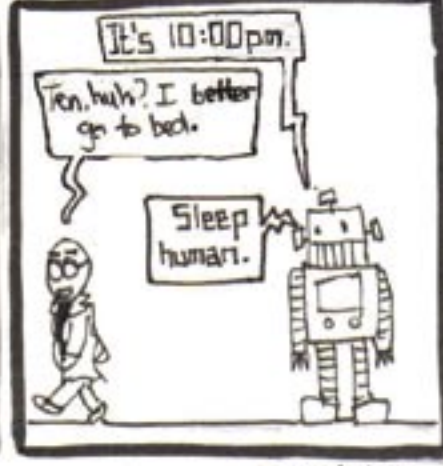 It's 10:00pm.
Ten, huh? I better
go to bed.
Sleep
human.